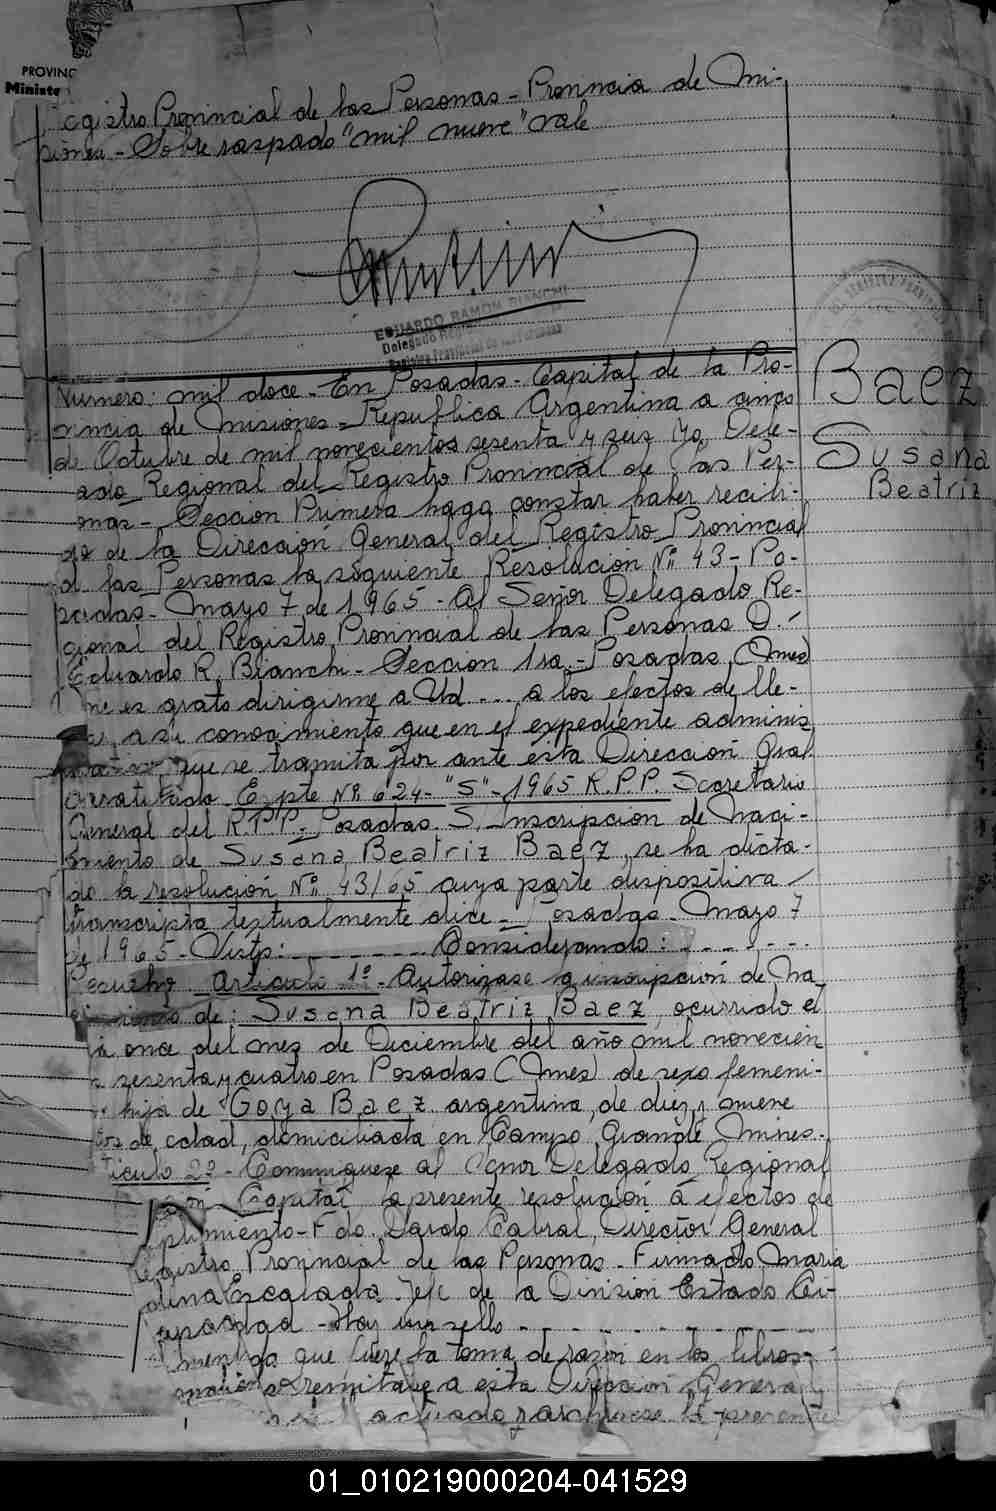 PROVINC
Minister
egistro Provincial de las Personas - Provincia de Mi-
siones - Sobre raspado "mil nueve" vale
EDUARDO RAMON BIANCHI
Delegado Regional
Registro Provincial de las Personas
Numero: mil doce - En Posadas - Capital de la Pro-
vincia de Misiones - Republica Argentina a cinco
de Octubre de mil novecientos sesenta y seis Yo, Dele-
ado Regional del Registro Provincial de las Per-
onas - Seccion Primera hago constar haber recibi-
do de la Dirección General del Registro Provincial
d las Personas la siguiente Resolución Nº 43 - Po-
sadas - Mayo 7 de 1965 - Al Señor Delegado Re-
gional del Registro Provincial de las Personas D.
Eduardo R. Bianchi - Seccion 1ra - Posadas (Mnes)
me es grato dirigirme a Ud --- a los efectos de lle-
a su conocimiento que en el expediente adminis
que se tramita por ante ésta Dirección Gral
caratulado Expte Nº 624 - "S" - 1965 R.P.P. Secretario
General del R.P.P. - Posadas S/ Inscripción de Naci-
miento de Susana Beatriz Baez, se ha dicta-
do la resolución Nº 43/65 cuya parte dispositiva
transcripta textualmente dice - Posadas - Mayo 7
de 1965 - Visto: ------- Considerando: -------
Resuelvo Articulo 1º - Autorizase la inscripción de Na
de: Susana Beatriz Baez, ocurrido el
once del mes de Diciembre del año mil novecien
sesenta y cuatro en Posadas (Mnes) de sexo femeni-
hija de Goya Baez argentina, de diez y nueve
años de edad, domiciliada en Campo Grande, Mnes.-
ticulo 2º - Comuniquese al Señor Delegado Regional
Capital la presente resolución a efectos de
plimiento - Fdo. Dardo Cabral, Director General
Registro Provincial de las Personas - Firmado Maria
Escalada Jefe de la Division Estado Ci-
- Hay un sello - - - - - - -
que fuere la toma de razón en los libros
remitase a esta Dirección General
actuado y archivese la presente
Baez
Susana
Beatriz
01_010219000204-041529